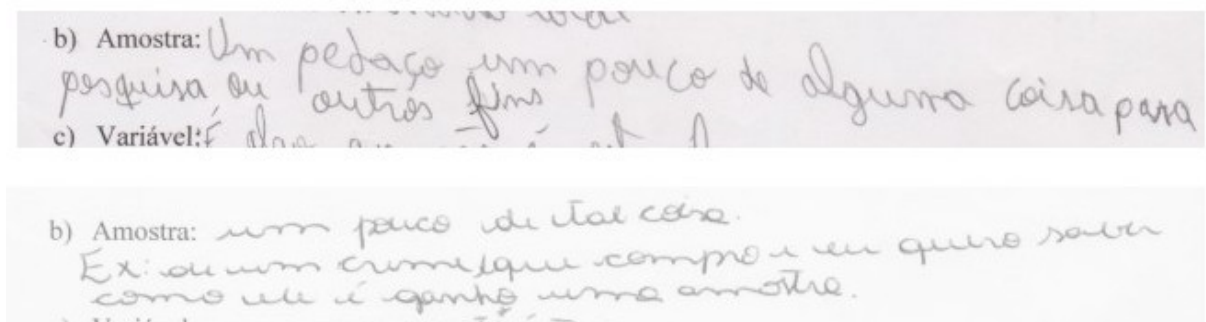 b) Amostra: Um pedaço um pouco de alguma coisa para
pesquisa ou outros fins
c) Variável: É
b) Amostra: um pouco de tal coisa.
Ex: de um creme que compro e eu quero saber
como ele é ganho uma amostra.